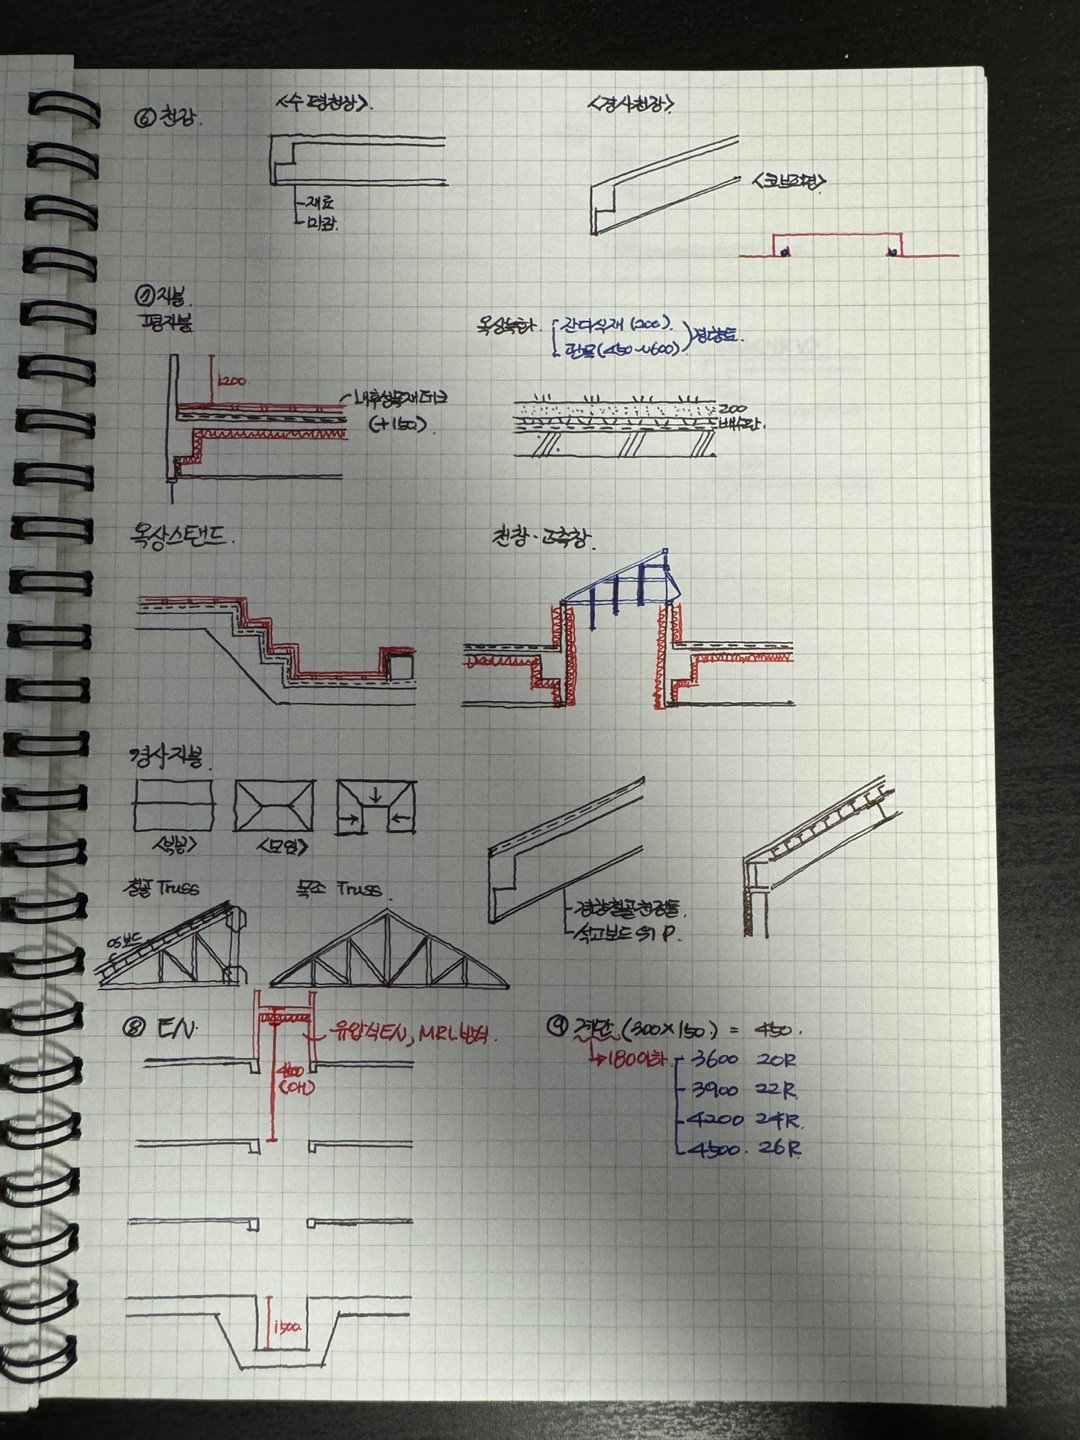 ⑥ 천장.
<수평천장>.
<경사천장>
재료
마감.
<코브조명>
⑦ 지붕.
평지붕
1200
내후성목재데크
(+150).
옥상녹화.
잔디식재 (200).
관목 (450~600)
경량토.
200
배수판.
옥상스탠드.
천창·고측창.
경사지붕.
<박공>
<모임>
철골 Truss
OS보드
목조 Truss.
경량철골천정틀.
석고보드 위 P.
⑧ E/V.
유압식E/V, MRL방식.
(OH)
1500
⑨ 계단. (300×150.) = 450.
→1800이하
3600 20R
3900 22R.
4200 24R.
4500. 26R.